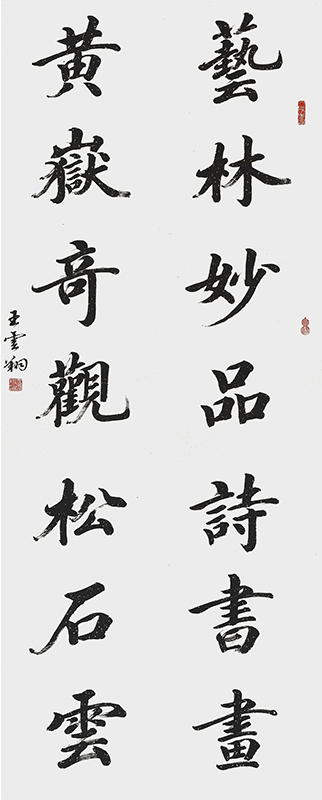 藝林妙品詩書畫
黃嶽奇觀松石雲
王雲翔